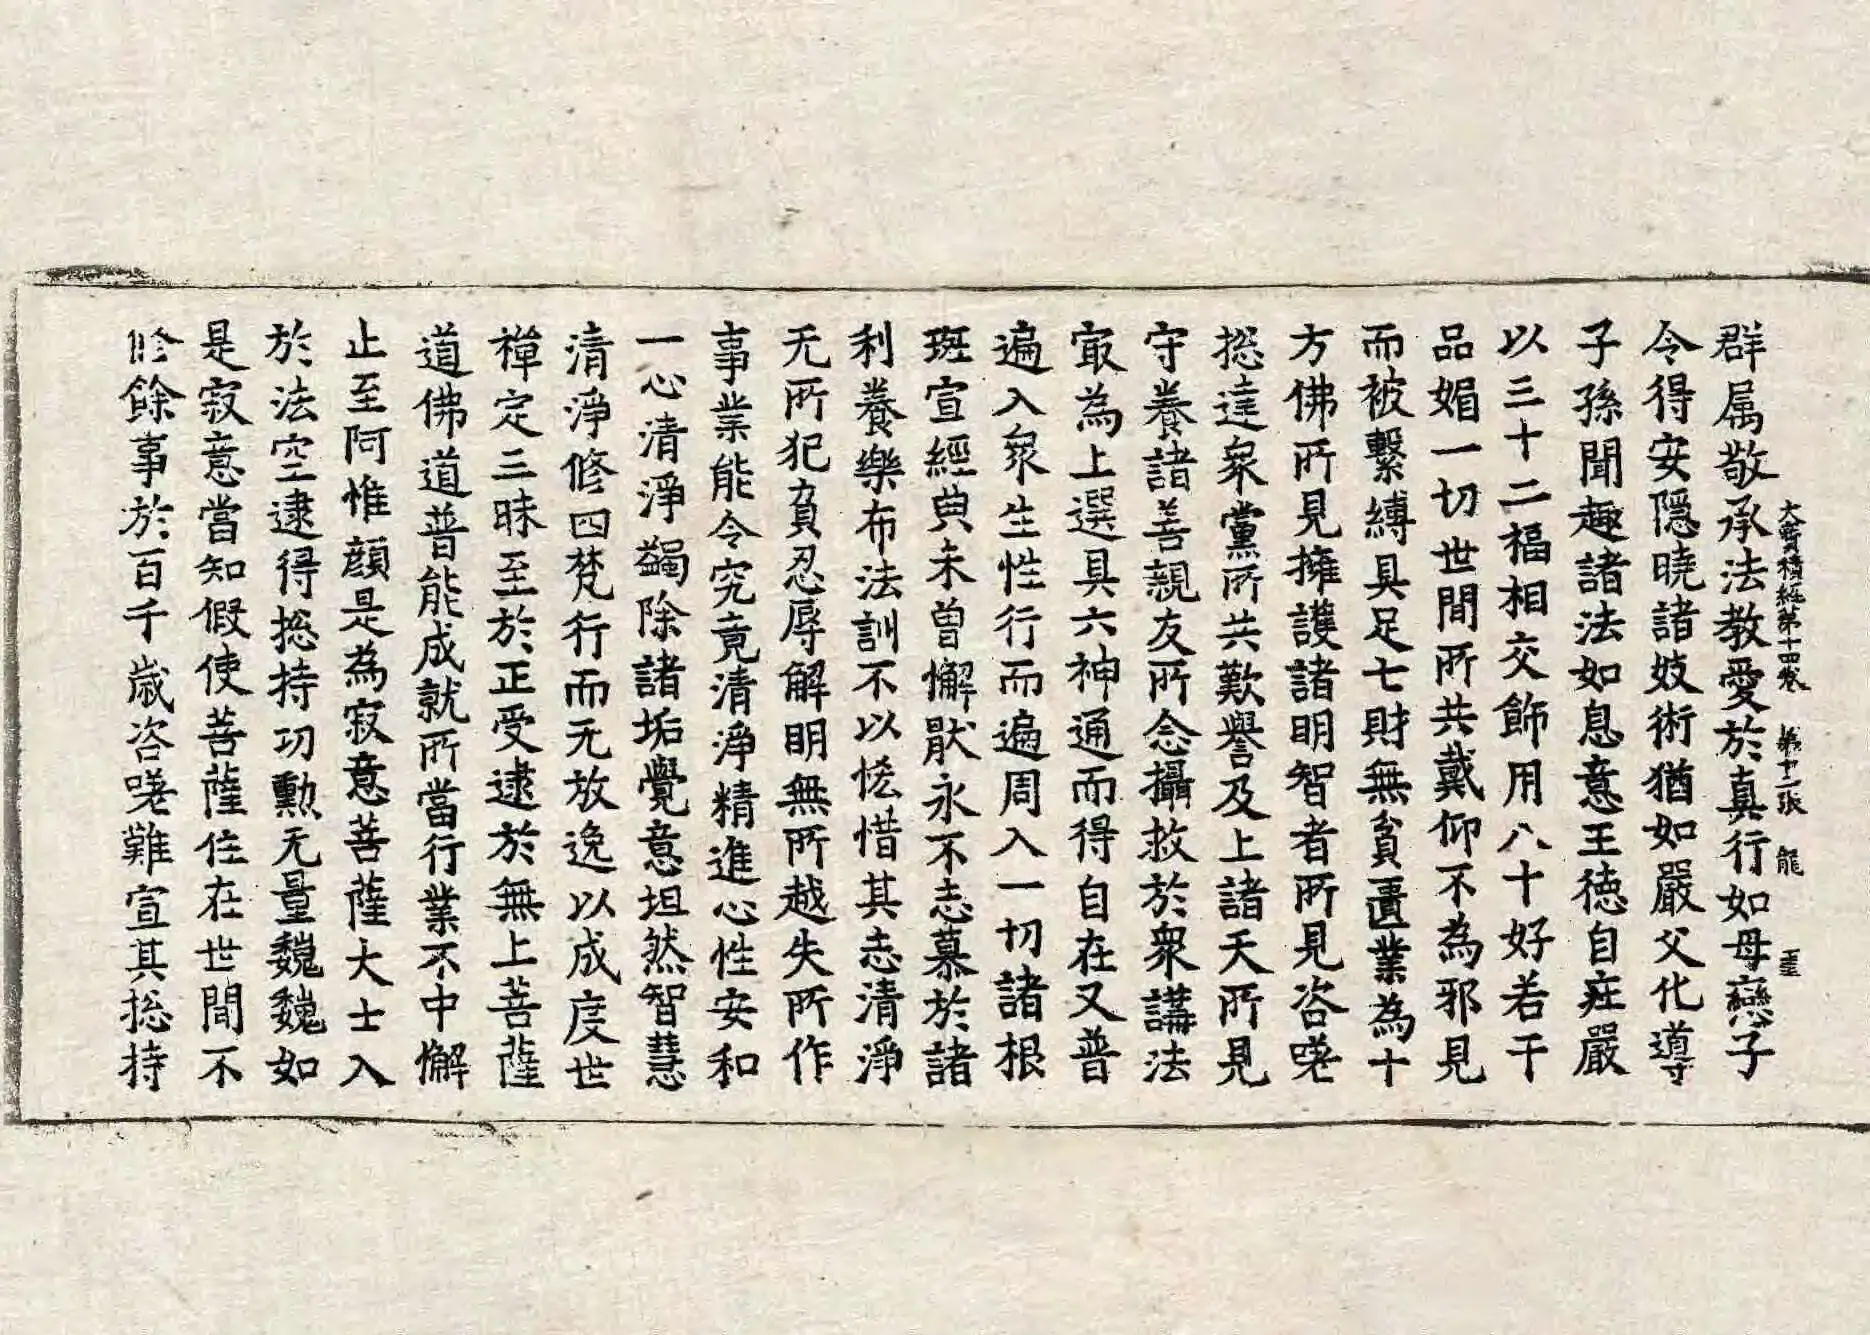 大寶積經第十四卷 第十二張 龍
群属敬承法教愛於真行如母戀子
令得安隱曉諸妓術猶如嚴父化導
子孫聞趣諸法如息意王德自莊嚴
以三十二福相交飾用八十好若干
品媚一切世間所共戴仰不為邪見
而被繫縛具足七財無貧匱業為十
方佛所見擁護諸明智者所見咨嗟
揔達衆黨所共歎譽及上諸天所見
守養諸善親友所念攝救於衆講法
冣為上選具六神通而得自在又普
遍入衆生性行而遍周入一切諸根
班宣經典未曽懈厭永不志慕於諸
利養樂布法訓不以恡惜其志清淨
无所犯負忍辱解明無所越失所作
事業能令究竟清淨精進心性安和
一心清淨蠲除諸垢覺意坦然智慧
清淨修四梵行而无放逸以成度世
禪定三昧至於正受逮於無上菩薩
道佛道普能成就所當行業不中懈
止至阿惟顔是為寂意菩薩大士入
於法空逮得揔持功勲无量魏魏如
是寂意當知假使菩薩住在世間不
脩餘事於百千歳咨嗟難宣其揔持